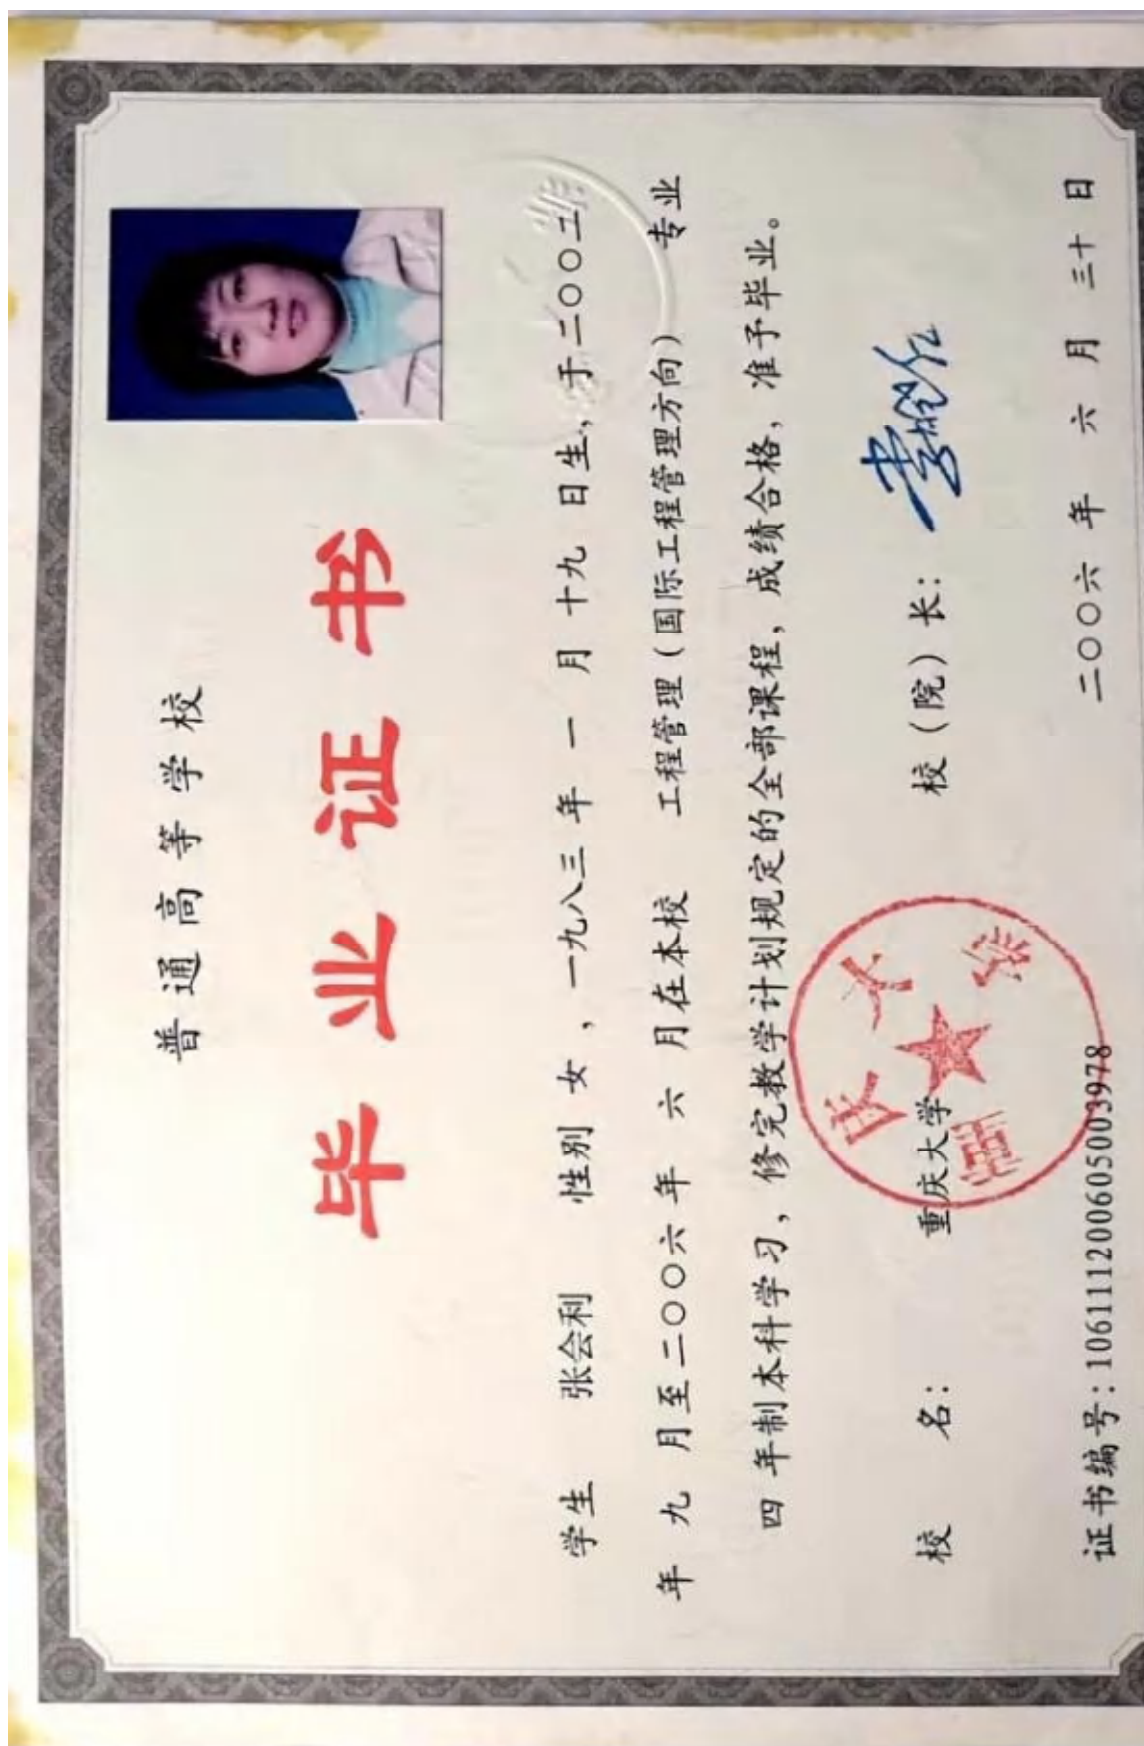 普通高等学校
毕业证书
学生 张会利 性别 女，一九八三年 一 月 十九 日生，于二〇〇二
年 九 月至二〇〇六年 六 月在本校 工程管理（国际工程管理方向） 专业
四 年制本科学习，修完教学计划规定的全部课程，成绩合格，准予毕业。
校 名： 重庆大学 校（院）长：
重庆大学
证书编号：106111200605003978 二〇〇六 年 六 月 三十 日